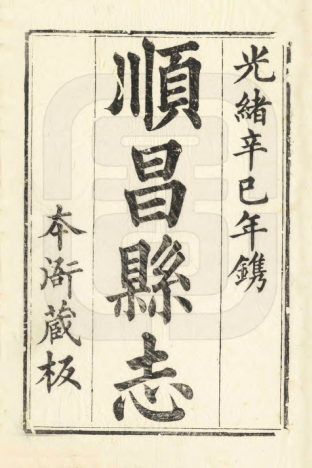 光緒辛巳年鐫
順昌縣志
本衙藏板